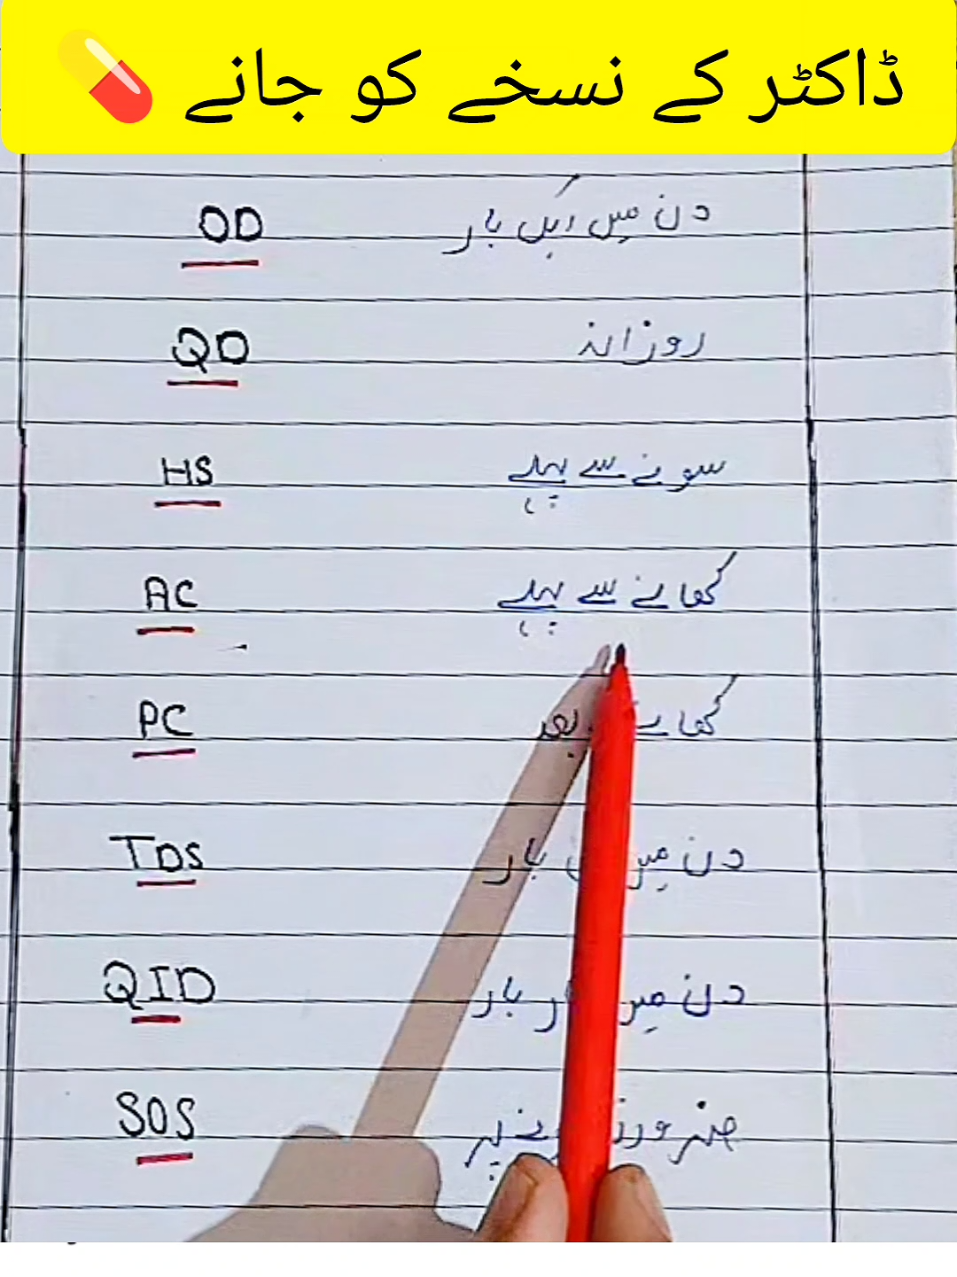 ڈاکٹر کے نسخے کو جانے
OD دن میں ایک بار
QD روزانہ
HS سونے سے پہلے
AC کھانے سے پہلے
PC کھانے بعد
TDS دن میں بار
QID دن میں بار
SOS پر